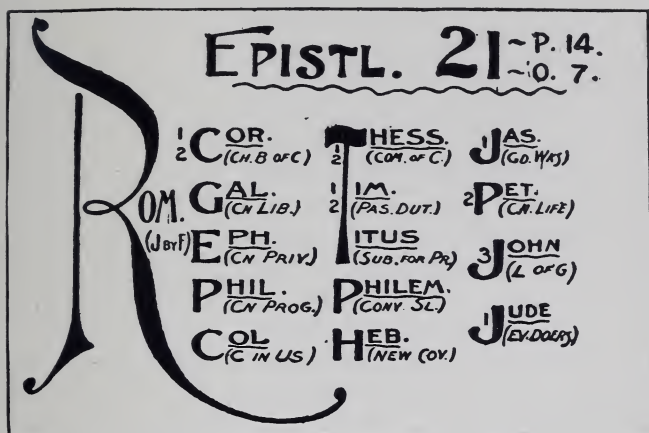 EPISTL. 21 ~P. 14.
~O. 7.
ROM.
(J BY F)
1 2 COR.
(CH. B OF C)
GAL.
(CN LIB.)
EPH.
(CN PRIV.)
PHIL.
(CN PROG.)
COL
(C IN US)
1 2 THESS.
(COM. OF C.)
1 2 TIM.
(PAS. DUT.)
TITUS
(SUB. FOR PR)
PHILEM.
(CONV. SL.)
HEB.
(NEW COV.)
1 JAS.
(GD. WKS)
2 PET.
(CN. LIFE)
3 JOHN
(L OF G)
1 JUDE
(EV. DOERS)